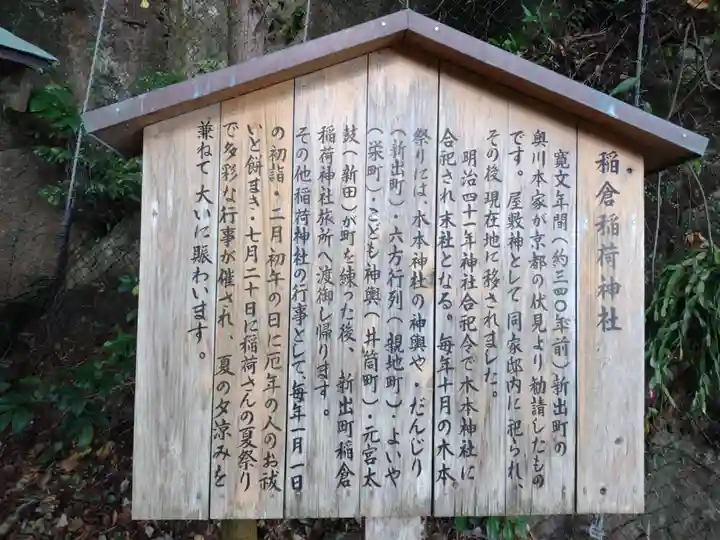 稲倉稲荷神社
寛文年間(約三四〇年前)新出町の
奥川本家が京都の伏見より勧請したもの
です。屋敷神として同家邸内に祀られ、
その後現在地に移されました。
明治四十一年神社合祀令で木本神社に
合祀され末社となる。毎年十月の木本
祭りには、木本神社の神輿や・だんじり
(新出町)・六方行列(親地町)・よいや
(栄町)・こども神輿(井筒町)・元宮太
鼓(新田)が町を練った後、新出町稲倉
稲荷神社旅所へ渡御し帰ります。
その他稲荷神社の行事として、毎年一月一日
の初詣・二月初午の日に厄年の人のお祓
いと餅まき・七月二十日に稲荷さんの夏祭り
で多彩な行事が催され、夏の夕涼みを
兼ねて大いに賑わいます。